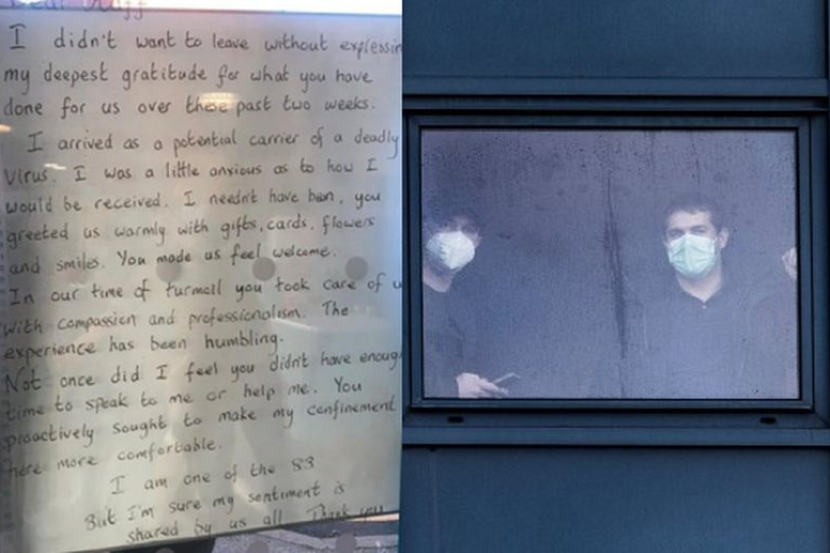 Dear Staff
I didn't want to leave without expressin
my deepest gratitude for what you have
done for us over these past two weeks.
I arrived as a potential carrier of a deadly
virus. I was a little anxious as to how I
would be received. I needn't have been, you
greeted us warmly with gifts, cards, flowers
and smiles. You made us feel welcome.
In our time of turmoil you took care of u
with compassion and professionalism. The
experience has been humbling.
Not once did I feel you didn't have enoug
time to speak to me or help me. You
proactively sought to make my confinement
here more comfortable.
I am one of the 83
But I'm sure my sentiment is
shared by us all. Thank you